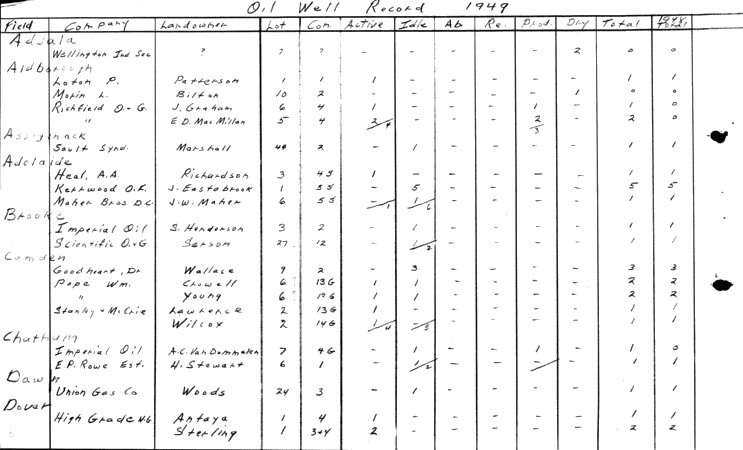 Oil Well Record 1949
Field Company Landowner Lot Con. Active Idle Ab Re. Prod. Dry Total 1948 Total
Adjala
Wellington Ind Sec ? ? ? - - - - - 2 0 0
Aldborough
Loton P. Patterson 1 1 1 - - - - - 1 1
Morin L. Bilton 10 2 - - - - - 1 0 0
Richfield O. - G. J. Graham 6 4 1 - - - 1 - 1 0
" E D. MacMillan 5 4 2/4 - - - 2/3 - 2 0
Assiginack
Sault Synd. Marshall 44 2 - 1 - - - - 1 1
Adelaide
Heal, A.A. Richardson 3 4 S 1 - - - - - 1 1
Kerrwood O.F. J. Eastabrook 1 5 S - 5 - - - - 5 5
Maher Bros D.C. J.W. Maher 6 5 S -/1 1/6 - - - - 1 1
Brooke
Imperial Oil S. Henderson 3 2 - 1 - - - - 1 1
Scientific O.+G Serson 27 12 - 1/2 - - - - 1 1
Camden
Goodheart, Dr Wallace 9 2 - 3 - - - - 3 3
Pope Wm. Crowell 6 ? 13 G 1 1 - - - - 2 2
" Young 6 ? 12 G 1 1 - - - - 2 2
Stanley + McCrie Lawrence 2 13 G 1 - - - - - 1 1
Wilcox 2 14 G 1/4 -/5 - - - - 1 1
Chatham
Imperial Oil A.C. Van Dommalen 7 4 G - 1 - - 1 - 1 0
E.P. Rowe Est. H. Stewart 6 1 - 1/2 - - - - 1 1
Dawn
Union Gas Co Woods 24 3 - 1 - - - - 1 1
Dover
High Grade Antaya 1 4 1 - - - - - 1 1
Sterling 1 3+4 2 - - - - - 2 2